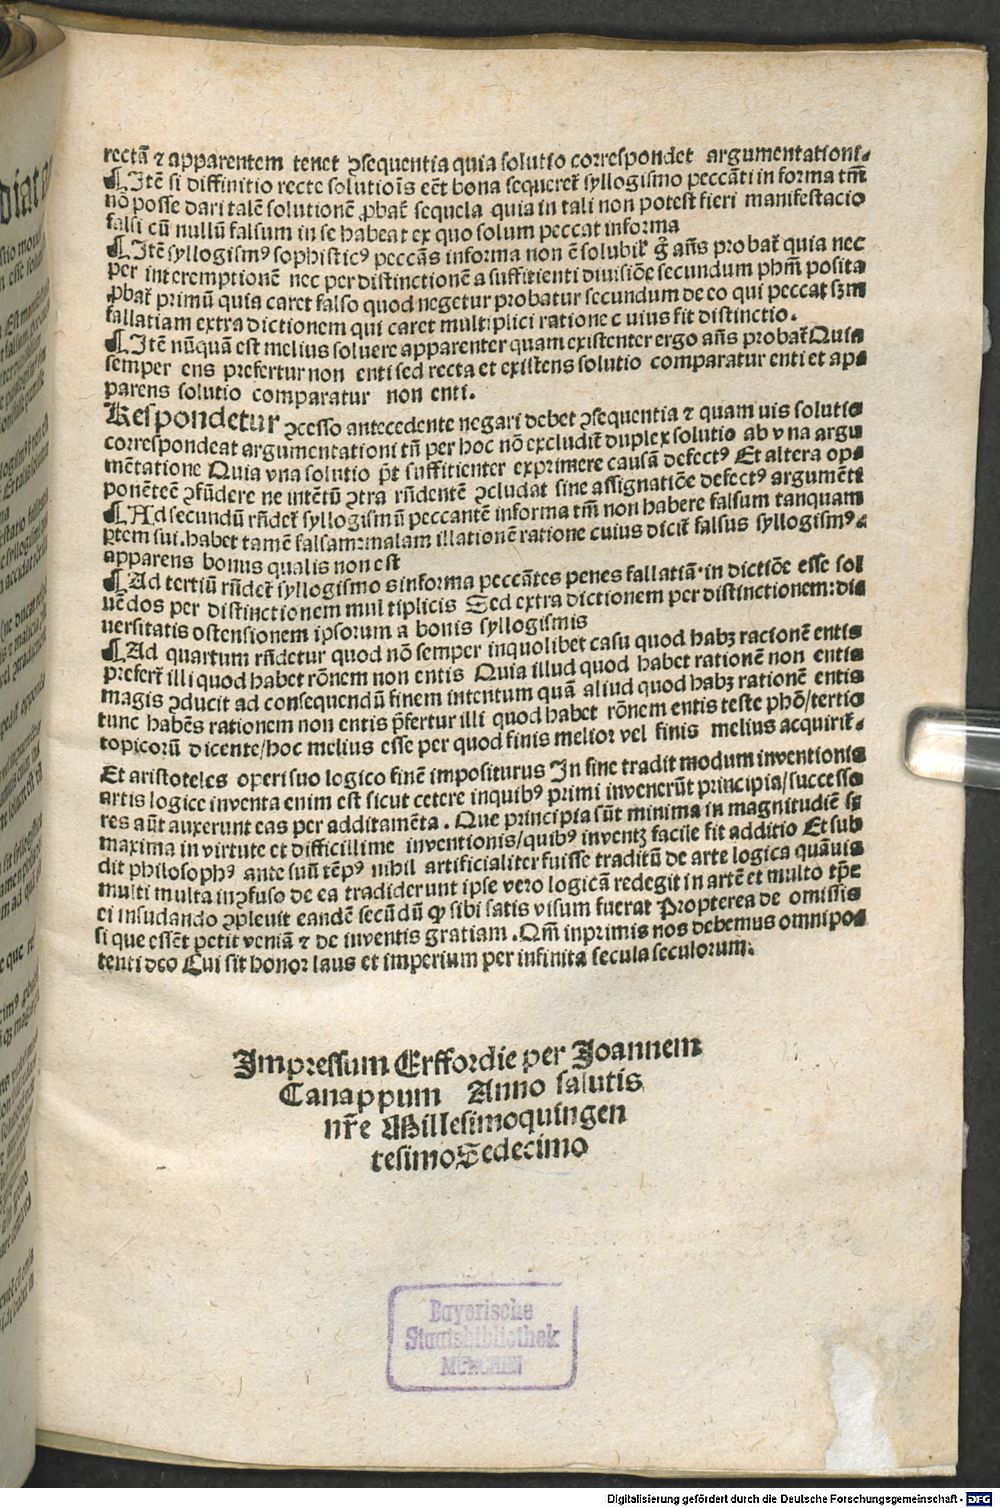 rectā ⁊ apparentem tenet ꝯsequentia quia solutio correspondet argumentationi.
¶ Itē si diffinitio recte solutiōis eēt bona sequeret᷑ syllogismo peccāti in forma tm̄
nō posse dari talē solutionē ꝓbat᷑ sequela quia in tali non potest fieri manifestacio
falsi cū nullū falsum in se habeat ex quo solum peccat informa
¶ Itē syllogismꝰ sophisticꝰ peccās informa non ē solubil᷑ g̊ añs probat᷑ quia nec
per interemptionē nec per distinctionē a suffitienti diuisiōe secundum ph̄m posita
ꝓbat᷑ primū quia caret falso quod negetur probatur secundum de eo qui peccat sꝫm
fallatiam extra dictionem qui caret multiplici ratione cuius fit distinctio.
¶ Itē nūquā est melius soluere apparenter quam existenter ergo añs probat᷑ Quia
semper ens prefertur non enti sed recta et existens solutio comparatur enti et ap⸗
parens solutio comparatur non enti.
Respondetur ꝯcesso antecedente negari debet ꝯsequentia ⁊ quam uis solutio
correspondeat argumentationi tn̄ per hoc nō excludit᷑ duplex solutio ab vna argu
mētatione Quia vna solutio p̄t suffitienter exprimere causā defectꝰ Et altera op⸗
ponēteē ꝯfūdere ne intētū ꝯtra rñdentē ꝯcludat sine assignatiōe defectꝰ argumēti
¶ Ad secundū rñdet᷑ syllogismū peccantē informa tm̄ non habere falsum tanquam
ꝑtem sui. habet tamē falsam:malam illationē ratione cuius dicit᷑ falsus syllogismꝰ.⸗
apparens bonus qualis non est
¶ Ad tertiū rñdet᷑ syllogismos informa peccātes penes fallatiā·in dictiōe esse sol
uēdos per distinctionem multiplicis Sed extra dictionem per distinctionem:di⸗
uersitatis ostensionem ipsorum a bonis syllogismis
¶ Ad quartum rñdetur quod nō semper inquolibet casu quod habꝫ racionē entis
prefert᷑ illi quod habet rōnem non entis Quia illud quod habet rationē non entis
magis ꝯducit ad consequendū finem intentum quā aliud quod habꝫ rationē entis
tunc habēs rationem non entis p̄fertur illi quod habet rōnem entis teste phō/tertio
topicorū dicente/hoc melius esse per quod finis melior vel finis melius acquirit᷑.
Et aristoteles operi suo logico finē impositurus In fine tradit modum inventionis
artis logice inventa enim est sicut cetere inquibꝰ primi invenerūt principia/successo
res aūt auxerunt eas per additamēta. Que principia sūt minima in magnitudiē sꝫ
maxima in virtute et difficillime inventionis/quibꝰ inventꝫ facile fit additio Et sub
dit philosophꝰ ante suū tēpꝰ nihil artificialiter fuisse traditū de arte logica quāuis
multi multa inꝯfuso de ea tradiderunt ipse vero logicā redegit in artē et multo tp̄e
ei insudando ꝯpleuit eandē secūdū ꝙ sibi satis visum fuerat Propterea de omissis
si que essēt petit veniā ⁊ de inventis gratiam. Qm̄ inprimis nos debemus omnipo⸗
tenti deo Cui sit honor laus et imperium per infinita secula seculorum.
Impressum Erffordie per Joannem
Canappum Anno salutis
nr̄e Millesimoquingen
tesimoSedecimo
Bayerische
Staatsbibliothek
MÜNCHEN
Digitalisierung gefördert durch die Deutsche Forschungsgemeinschaft - DFG